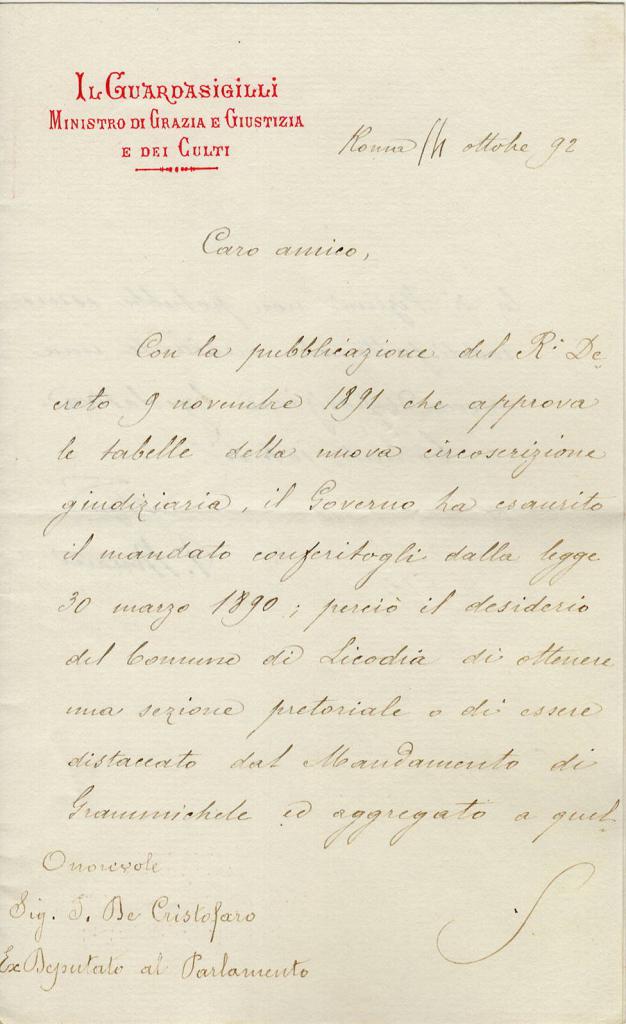 IL GUARDASIGILLI
MINISTRO DI GRAZIA E GIUSTIZIA
E DEI CULTI
Roma ottobre 92
Caro amico,
Con la pubblicazione del R.° De-
creto 9 novembre 1891 che approva
le tabelle della nuova circoscrizione
giudiziaria, il Governo ha esaurito
il mandato conferitogli dalla legge
30 marzo 1890; perciò il desiderio
del Comune di Licodia di ottenere
una sezione pretoriale o di essere
distaccato dal Mandamento di
Grammichele ed aggregato a quel-
Onorevole
Sig. I. De Cristofaro
Ex Deputato al Parlamento